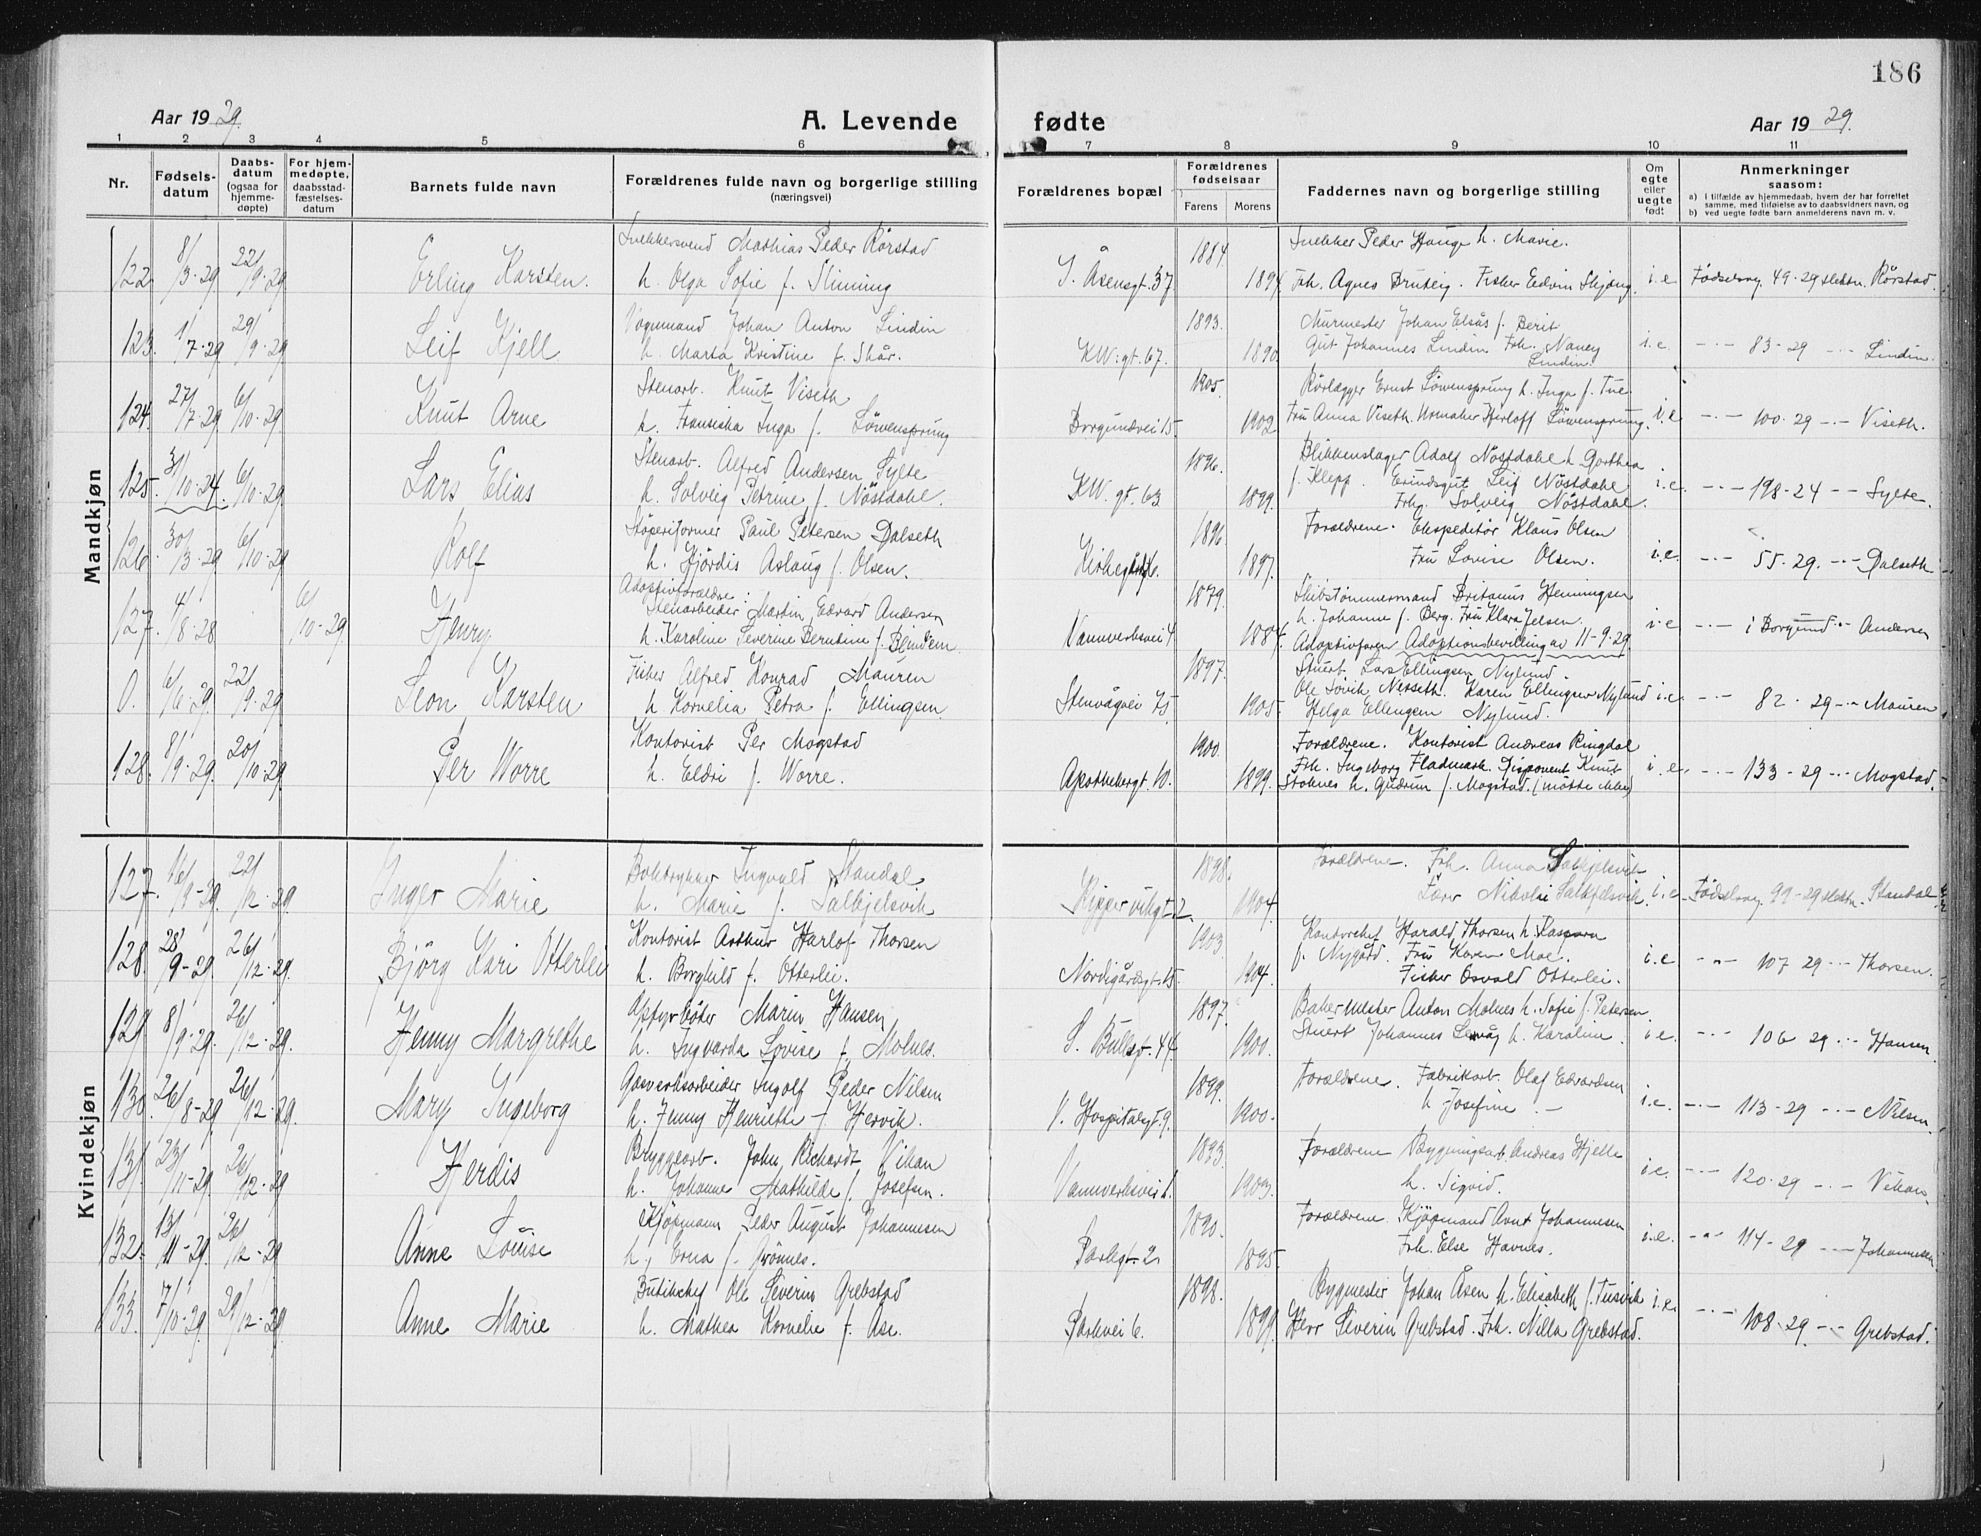 186
Aar 1929.
A. Levende fødte
Aar 1929.
1 2 3 4 5 6 7 8 9 10 11
Nr.
Fødsels-
datum
Daabs-
datum
(ogsaa for
hjemme-
døpte)
For hjem-
medøpte,
daabsstad-
fæstelses-
datum
Barnets fulde navn
Forældrenes fulde navn og borgerlige stilling
(næringsvei)
Forældrenes bopæl
Forældrenes
fødselsaar
Farens Morens
Faddernes navn og borgerlige stilling
Om
egte
eller
uegte
født
Anmerkninger
saasom:
a) I tilfælde av hjemmedaab, hvem der har forrettet
samme, med tilføielse av to daabsvidners navn, og
b) ved uegte fødte barn anmelderens navn m. v.
Mandkjøn
Snekkersvend Mathias Peder Rörstad 1884. Snekker Peder Hauge h. Marie.
122. 8/3-29 22/9-29 Erling Karsten. h. Olga Sofie f. Slinning Åsensgt. 37 1894. Frh. Agnes Bruteig. Fisker Edvin i.e. Fødselsreg. 49-29 Rörstad.
Vognmand Johan Anton Lindin 1893. Murmester Johan Elsås f. Berit
123. 1/7-29 29/9-29 Leif Kjell h. Marta Kristine f. Skår. KW. gt. 67. 1890 Gut Johannes Lindin Frh. Nancy i.e. 83-29 Lindin.
Lindin.
Stenarb. Knut Viseth 1905. Rörlægger Ernst Löwensprung h. Inga f. Tue.
124. 27/7-29 6/10-29 Knut Arne h. Fransiska Inga f. Löwensprung Borgundvei 15. 1902 Fru Anna Viseth. Urmaker Herloff Löwensprung. i.e. 100-29 Viseth.
Stenarb. Alfred Andersen Sylte 1896. Blikkenslager Adolf Nöstdahl h. Dorthea
125. 31/10-24. 6/10-29 Lars Elias h. Solveig Petrine f. Nöstdahl. KW. gt. 63 1899. f. Klepp. Leif Nöstdahl i.e. 198-24 Sylte.
Frh. Solveig Nöstdahl.
Støperiformer Paul Petersen Dalseth 1896. Forældrene. Ekspeditör Klaus Olsen
126. 30/3-29 6/10-29 Rolf h. Hjördis Aslaug f. Olsen. 1897. Fru Lovise Olsen. i.e. 55-29. Dalseth
Adoptivforældre:
Stenarbeider Martin Edvard Andersen 1879. Skibstömmermand Britanus Henningsen
127. 4/8-28 6/10-29 Henry h. Karoline Severine Berntine f. Blindem. Vannverksvei 4. 1884. h. Johanne f. Berg. Fru Klara Jelsen. i.e. i Borgund Andersen
Adoptivfaren Adoptionsbevilling av 11-9-29.
Fisker Alfred Konrad Mauren 1897. Stuert Lars Ellingsen Nylund.
0. 6/6-29. 22/9-29 Leon Karsten h. Kornelia Petra f. Ellingsen. Stenvågvei 75 1905. Ole Sövik Nerseth. Karen Ellingsen Nylund i.e. 82-29 Mauren
Helga Ellingsen Nylund.
Kontorist Per Mogstad 1900. Forældrene. Kontorist Andreas Ringdal
128. 8/9-29. 20/10-29 Per Worre h. Eldri f. Worre. Apothekergt. 10. 1899. Frh. Ingeborg Fladmark. Disponent Knut i.e. 133-29 Mogstad.
Stoknes h. Gudrun f. Mogstad. (mötte ikke)
Kvindekjøn
Boktrykker Ingvald Standal 1898. Forældrene. Frh. Anna Salkjelsvik
127. 16/9-29 22/12-29. Inger Marie h. Marie f. Salkjelsvik 1904. Nikolai Salkjelsvik. i.e. Fødselsreg. 99-29 Standal.
Kontorist Arthur Harlof Thorsen 1903. Kontorchef Harald Thorsen h. Kaspara
128. 28/9-29. 26/12-29. Björg Kari Otterlei h. Borghild f. Otterlei. Nordigårdsgt. 15 1904. f. Nygård. Fru Karen Moe. i.e. 107-29 Thorsen.
Fisker Osvald Otterlei.
Fyrböter Marin Hansen 1897. Bakermester Anton Molnes h. Sofie f. Petersen.
129. 8/9-29. 26/12-29. Henny Margrethe h. Ingvarda Lovise f. Molnes. S. Bullsgt. 44 1900. Stuert Johannes h. Karoline i.e. 106-29 Hansen.
Gasverksarbeider Ingolf Peder Nilsen 1899. Forældrene. Fabrikarb. Olaf Edvardsen
130. 26/8-29 26/12-29. Mary Ingeborg h. Jenny Henriette f. Hervik. V. Hospitalsgt. 9. 1900. h. Josefine. i.e. 113-29 Nilsen.
Bryggearb. John Richardt Vikan 1893. Forældrene Bygningsarb. Andreas Hjelle
131. 23/11-29. 26/12-29 Herdis h. Johanne Mathilde f. Josefsen. Vannverksvei 1903. h. Sigvid. i.e. 120-29 Vikan.
Kjöpmann Peder August Johannesen 1890. Forældrene. Kjöpmand Arnt Johannesen
132. 13/11-29. 26/12-29 Anne Louise h. Erna f. Grönnes. Parkgt. 2. 1895. Frh. Else Havnes. i.e. 114-29 Johannesen
Butikchef Ole Severin Grebstad 1898. Bygmester Johan Åsen h. Elisabeth f. Tusvik
133. 7/10-29. 29/12-29. Anne Marie h. Mathea Kornelie f. Ase. Parkvei 6. 1899. Herr Severin Grebstad. Frh. Nilla Grebstad. i.e. 108-29. Grebstad.